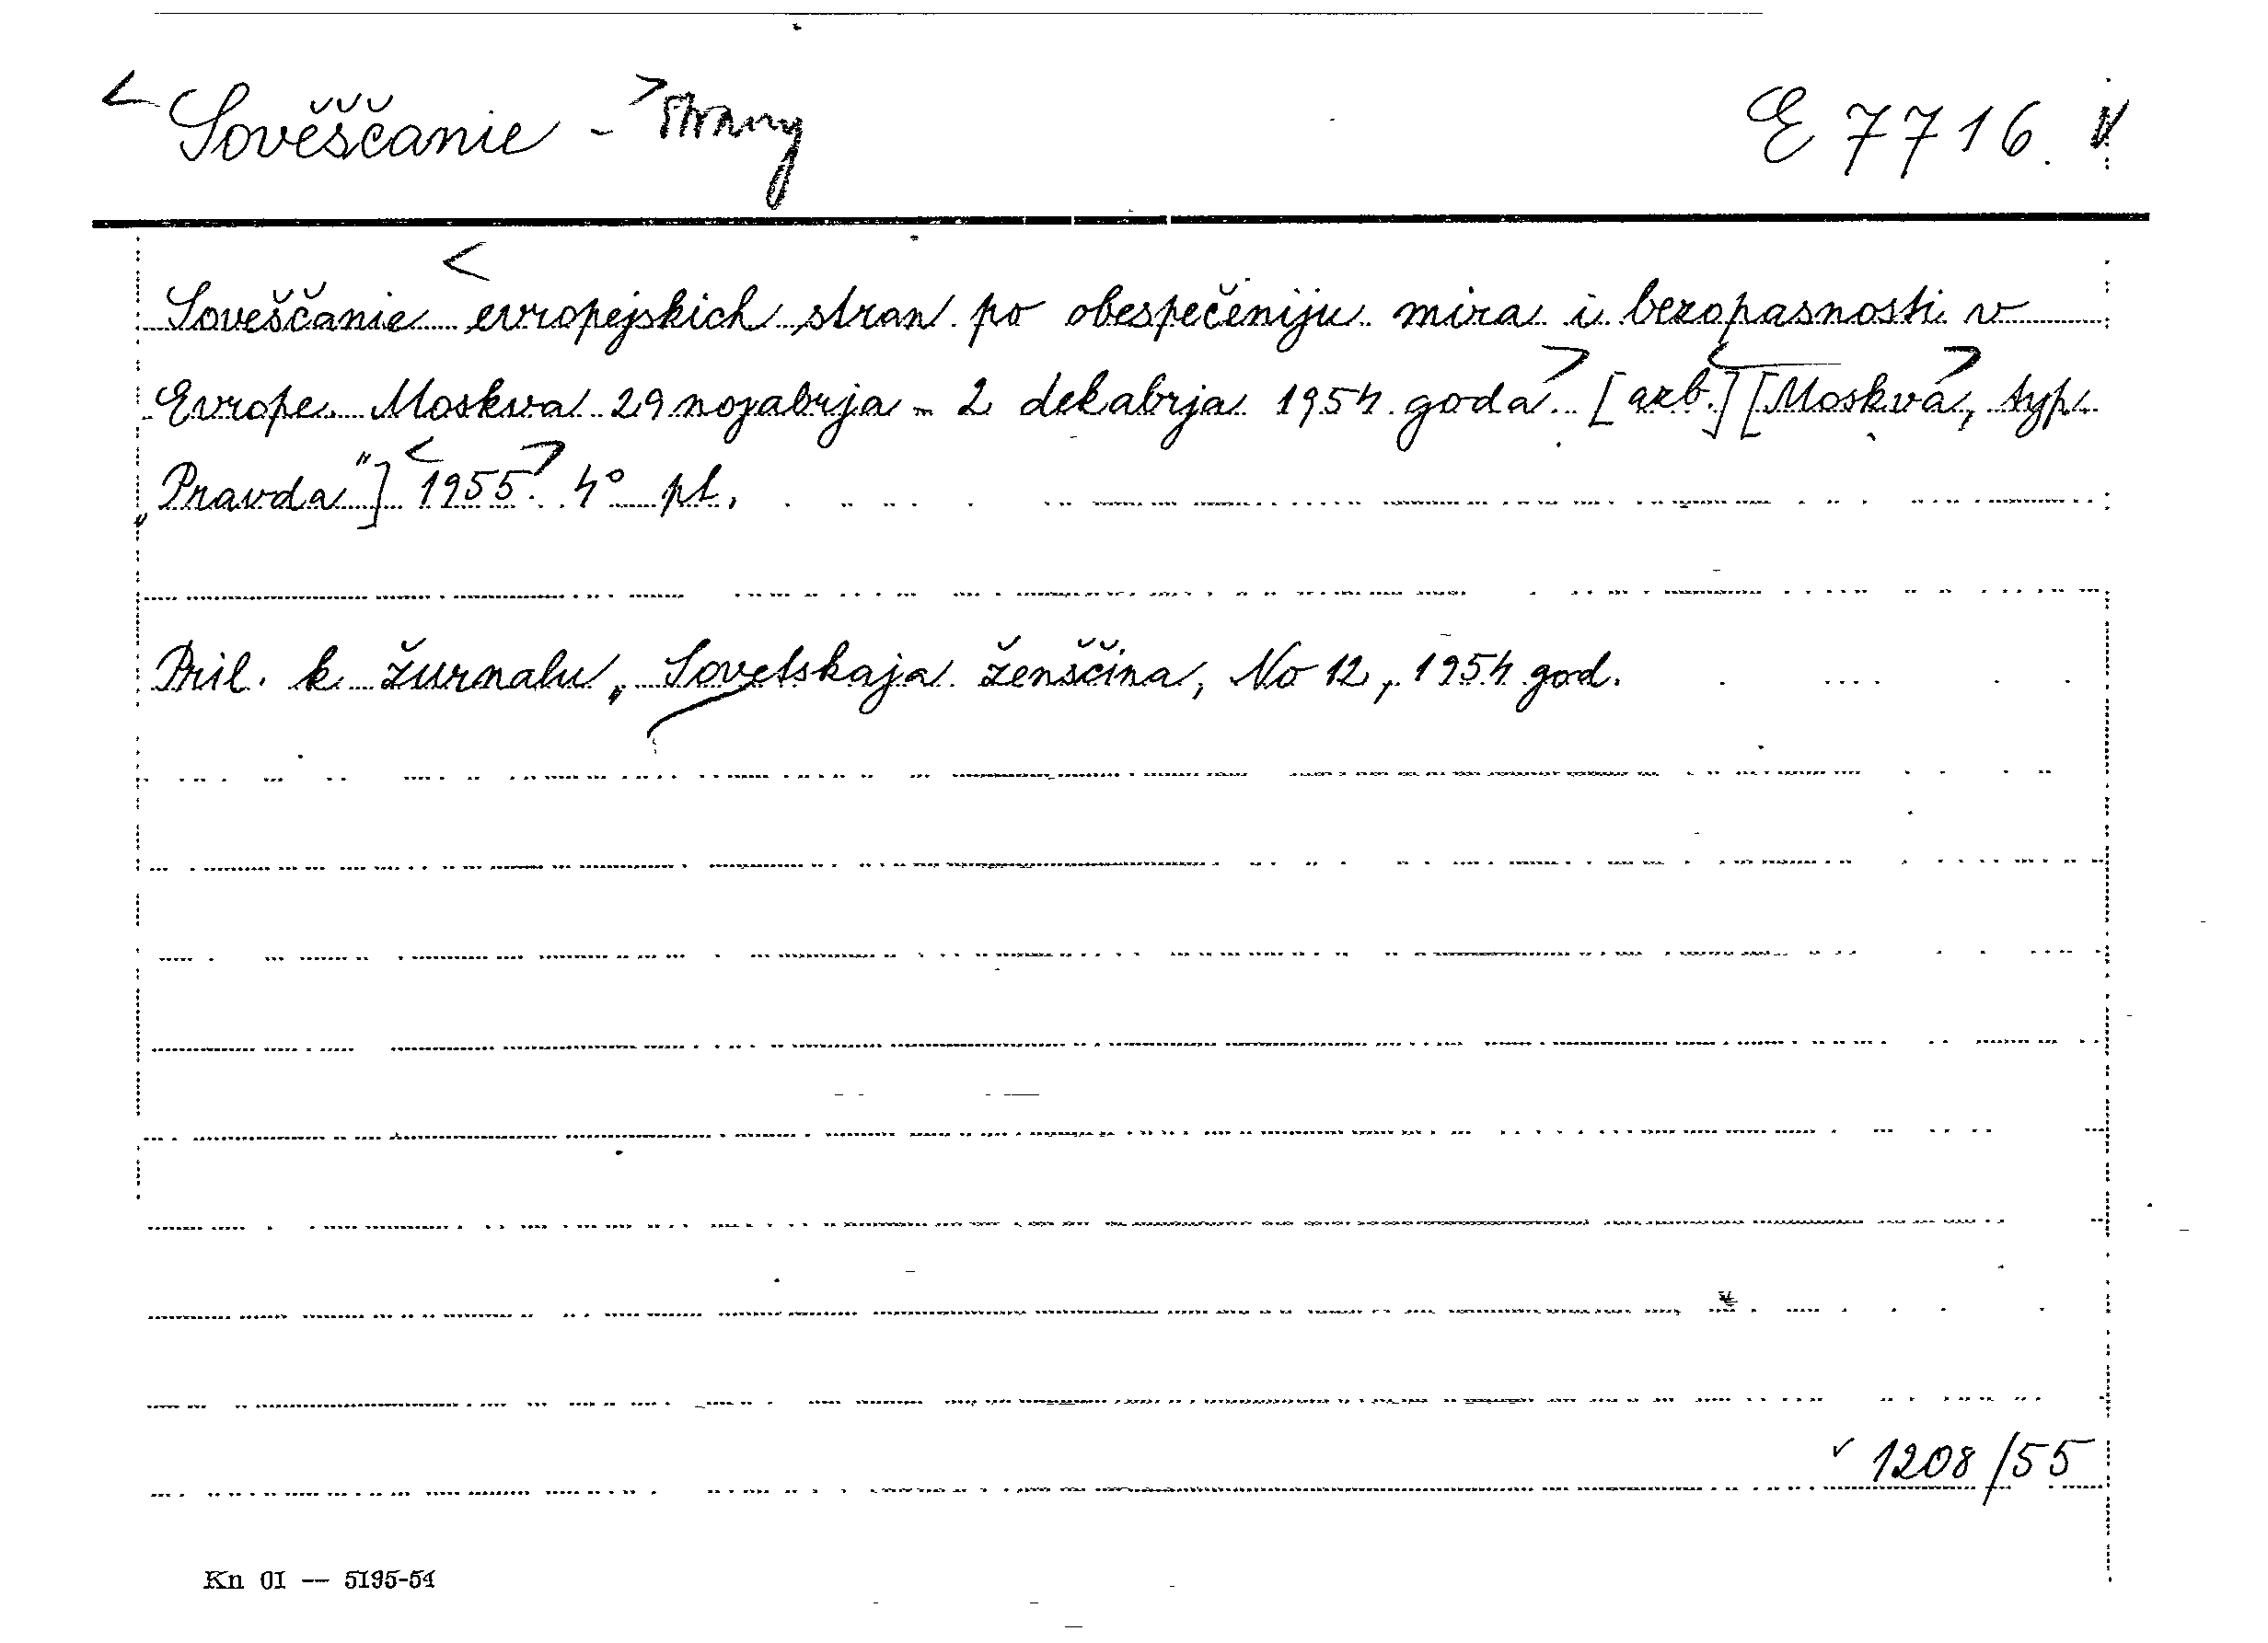 < Sověščanie - > strany E 7716. v
Soveščanie < evropejskich stran po obespečeniju mira i bezopasnosti v
Evrope. Moskva 29 nojabrja - 2 dekabrja 1954 goda>. [azb.] [<Moskva>, typ.
„Pravda"] <1955>. 4° pt.
Pril. k žurnalu „Sovetskaja ženščina, No 12, 1954 god.
✓ 1208/55
Kn 01 — 5195-54